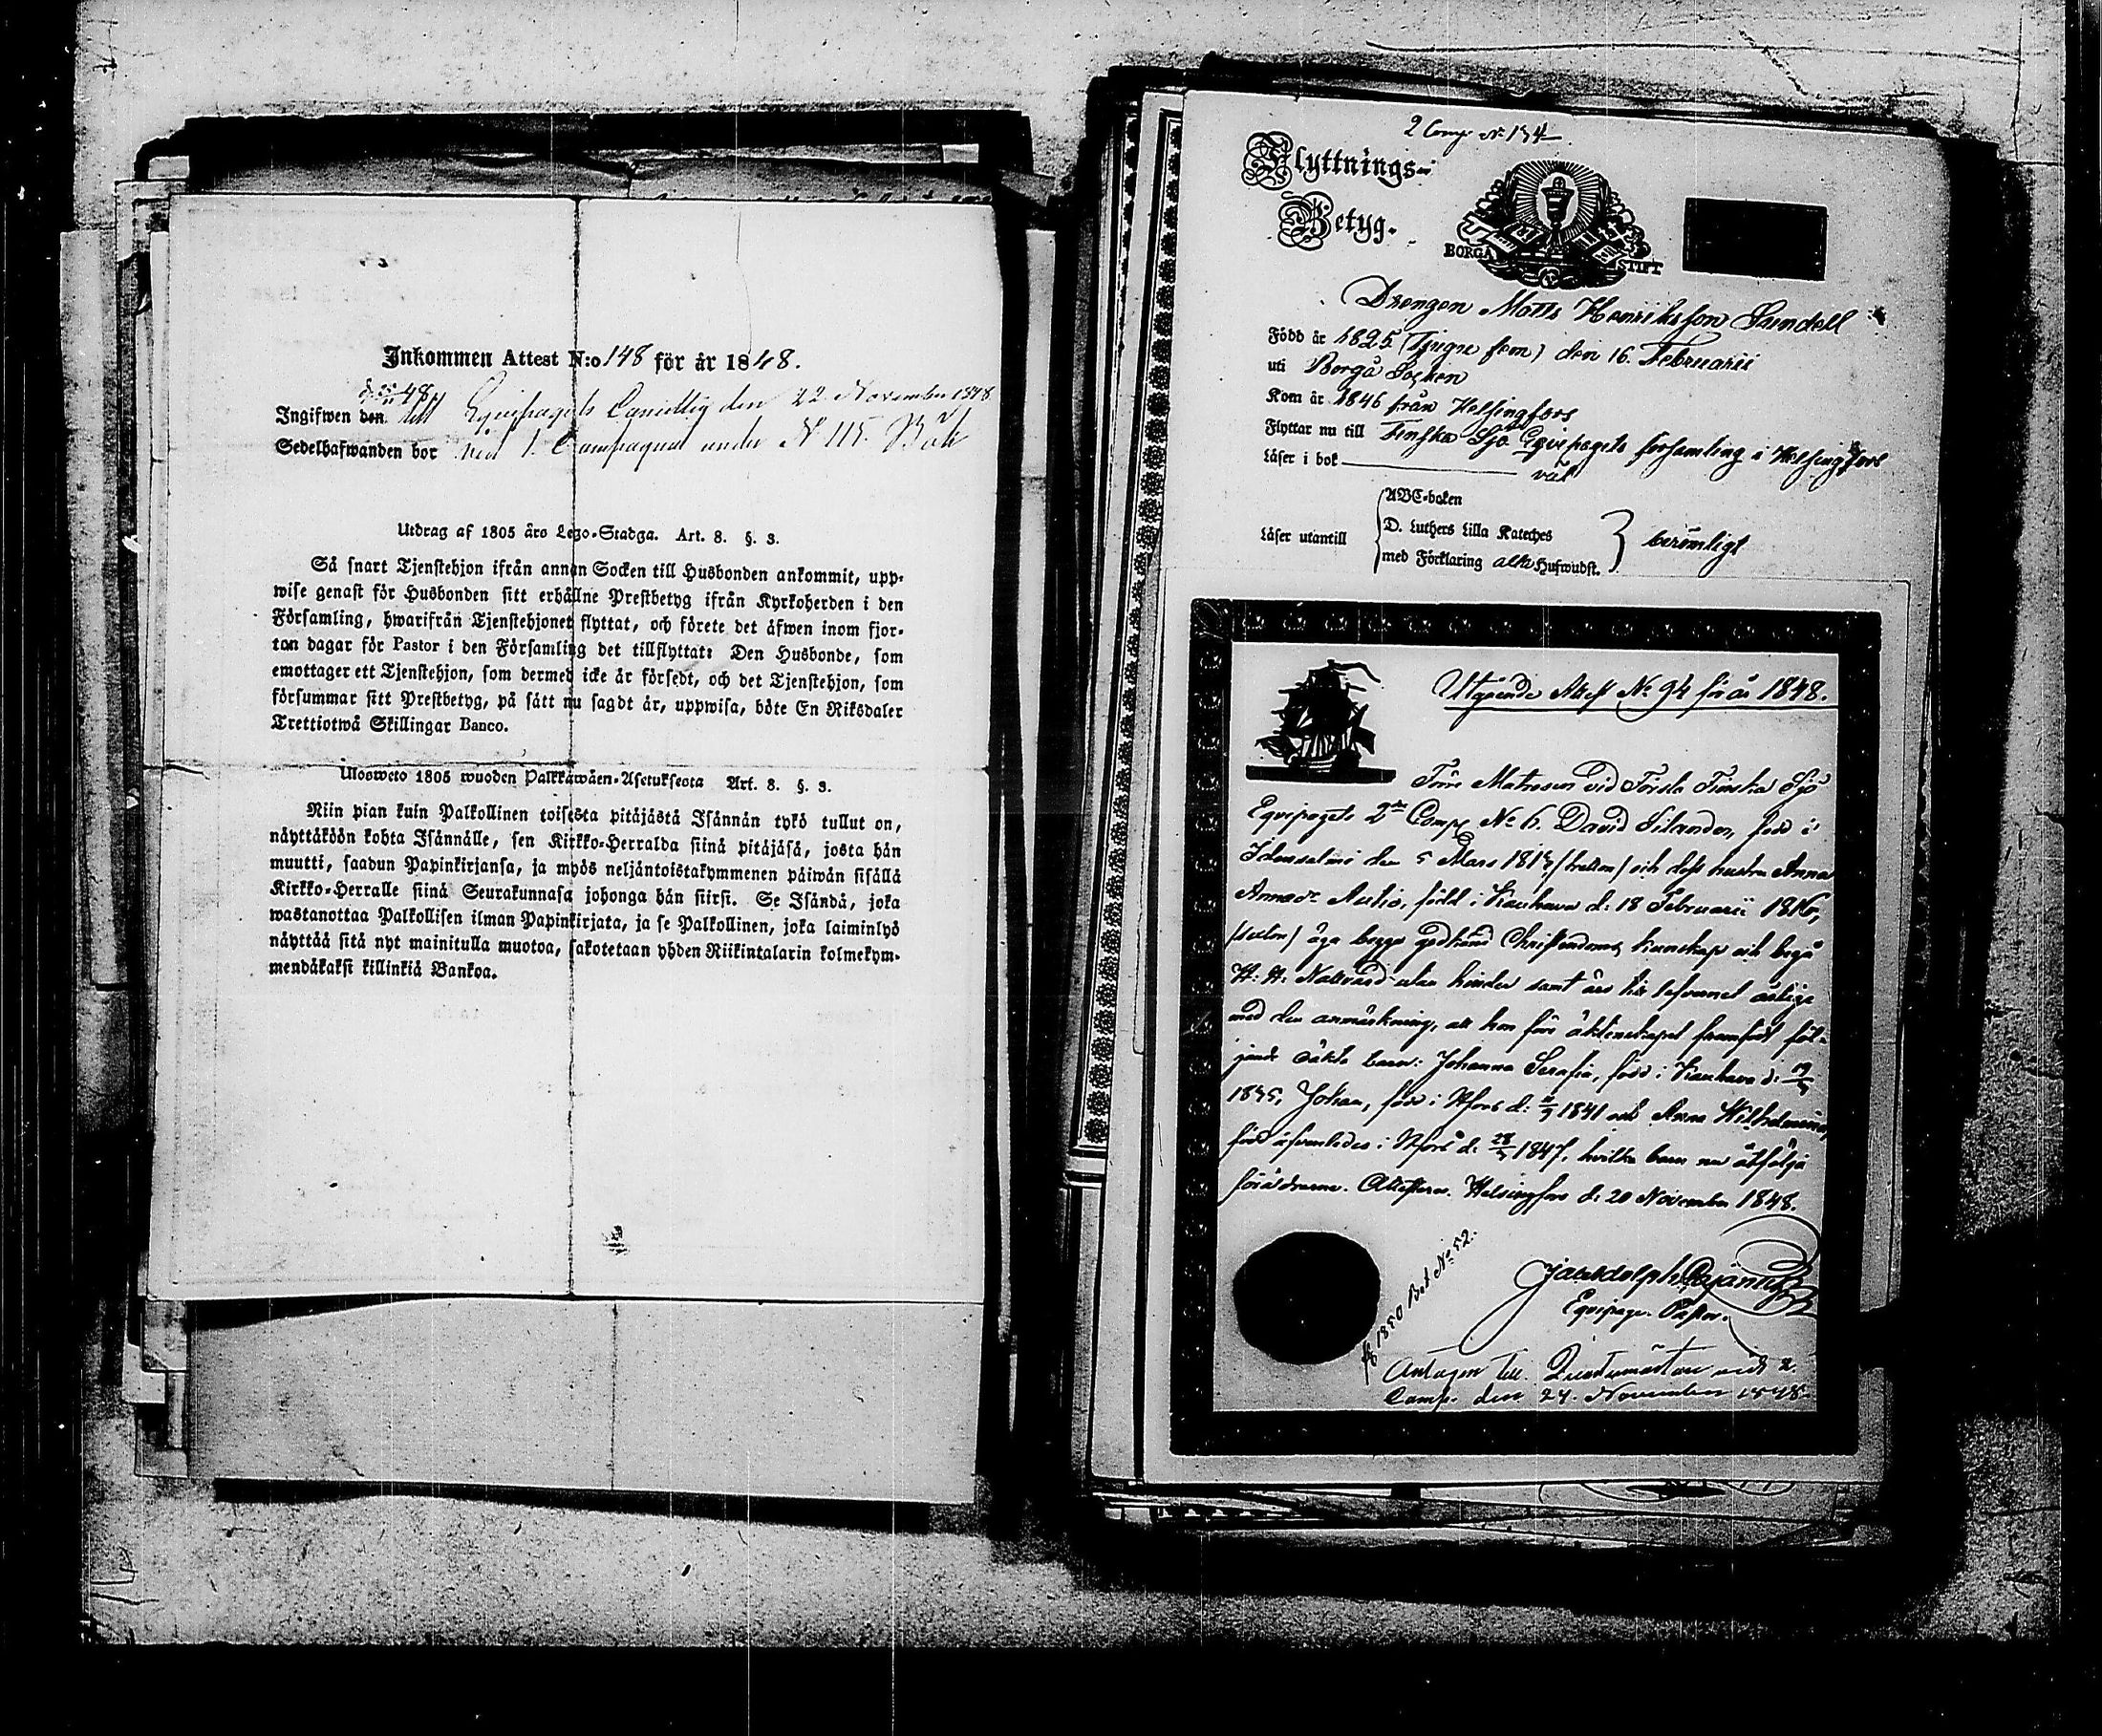 Inkommen Attest N:o 148 för år 1848.
Ingifwen den till Equipagets Cancellig den 22 November 1848
Sedelhafwanden bor vid 1. Compagniet under N 115. Båt
Utdrag af 1805 års Lego-Stadga. Art. 8. §. 3.
Så snart Tjenstehjon ifrån annan Socken till Husbonden ankommit, upp-
wise genast för Husbonden sitt erhållne Prestbetyg ifrån Kyrkoherden i den
Församling, hwarifrån Tjenstehjonet flyttat, och förete det äfwen inom fjor-
ton dagar för Pastor i den Församling det tillflyttat: Den Husbonde, som
emottager ett Tjenstehjon, som dermed icke är försedt, och det Tjenstehjon, som
försummar sitt Prestbetyg, på sätt nu sagdt är, uppwisa, böte En Riksdaler
Trettiotwå Skillingar Banco.
Ulosweto 1805 wuoden Palkkawäen-Asetuksesta Art. 8. §. 3.
Niin pian kuin Palkollinen toisesta pitäjästä Isännän tykö tullut on,
näyttäköön kohta Isännälle, sen Kirkko-Herralda siinä pitäjäsä, josta hän
muutti, saadun Papinkirjansa, ja myös neljäntoistakymmenen päiwän sisällä
Kirkko-Herralle siinä Seurakunnasa johonga hän siirsi. Se Isändä, joka
wastanottaa Palkollisen ilman Papinkirjata, ja se Palkollinen, joka laiminlyö
näyttää sitä nyt mainitulla muotoa, sakotetaan yhden Riikintalarin kolmekym-
mendäkaksi killinkiä Bankoa.
2 Comp. N: 134
Flyttnings-
Betyg.
BORGÅ STIFT
Drengen Matts Henriksson Sundell
Född år 1825 (Tjugu fem) den 16. Februarii
uti Borgå Socken
Kom år 1846 från Helsingfors
Flyttar nu till Finska Sjö Equipagets församling i Helsingfors
Läser i bok väl
ABC-boken
D. Luthers Lilla Kateches
Läser utantill
med Förklaring alla Hufwudst.
berömligt
Utgående Attest No 94 för år 1848.
Förre Matrosen vid Första Finska Sjö
Equipagets 2dra Comp. No 6. David Silander, född i
Idensalmi den 5 Mars 1813 (tretton) och dess hustru Anna
Annasdr Autio, född i Kauhava d: 18 Februarii 1816,
(sexton) äga begge godkänd Christendoms kunskap och begå
H. H. Nattvard utan hinder samt äro till lefvernet ärlige
med den anmärkning, att hon före äktenskapet framfödt föl-
jande oäkta barn: Johanna Serafia, född i Kauhava d:
1835, Johan, född i Hfors d: 1841 och Anna Wilhelmina,
född äfvenledes i Hfors d: 1847, hvilka barn nu åtfölja
föräldrarne. Attesteras. Helsingfors d: 20 November 1848.
Equipage-Pastor.
1850 Bet. No 52.
Antagen till Quartermästare vid 2
Comp. den 24. November 1848.